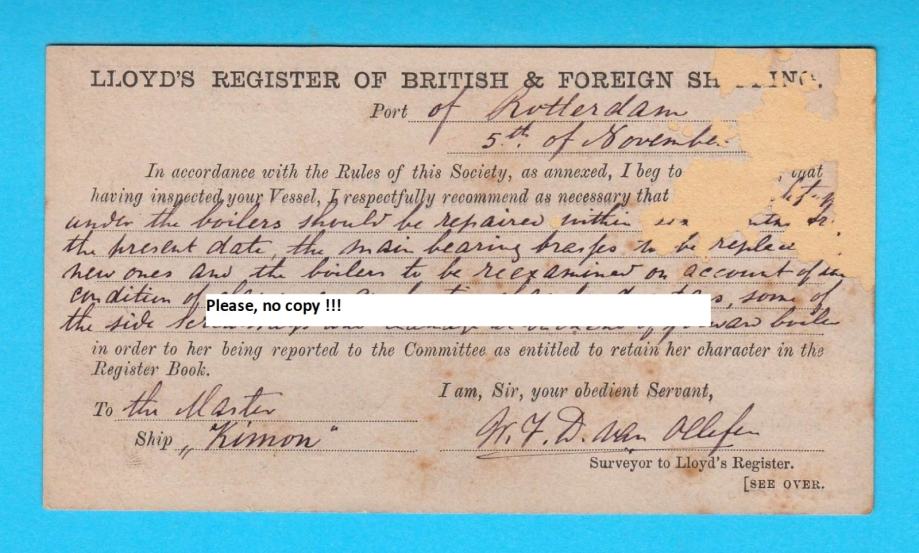 LLOYD'S REGISTER OF BRITISH & FOREIGN
Port of Rotterdam
5th of November
In accordance with the Rules of this Society, as annexed, I beg to that
having inspected your Vessel, I respectfully recommend as necessary that
under the boilers should be repaired within
the present date, the main bearing brasses to be replace
new ones and the boilers to be reexamined on account of
condition of some of
Please, no copy !!!
the side boiler
in order to her being reported to the Committee as entitled to retain her character in the
Register Book.
I am, Sir, your obedient Servant,
To the Master
Ship „Kimon“
W. F. D. van Ollefen
Surveyor to Lloyd's Register.
[SEE OVER.